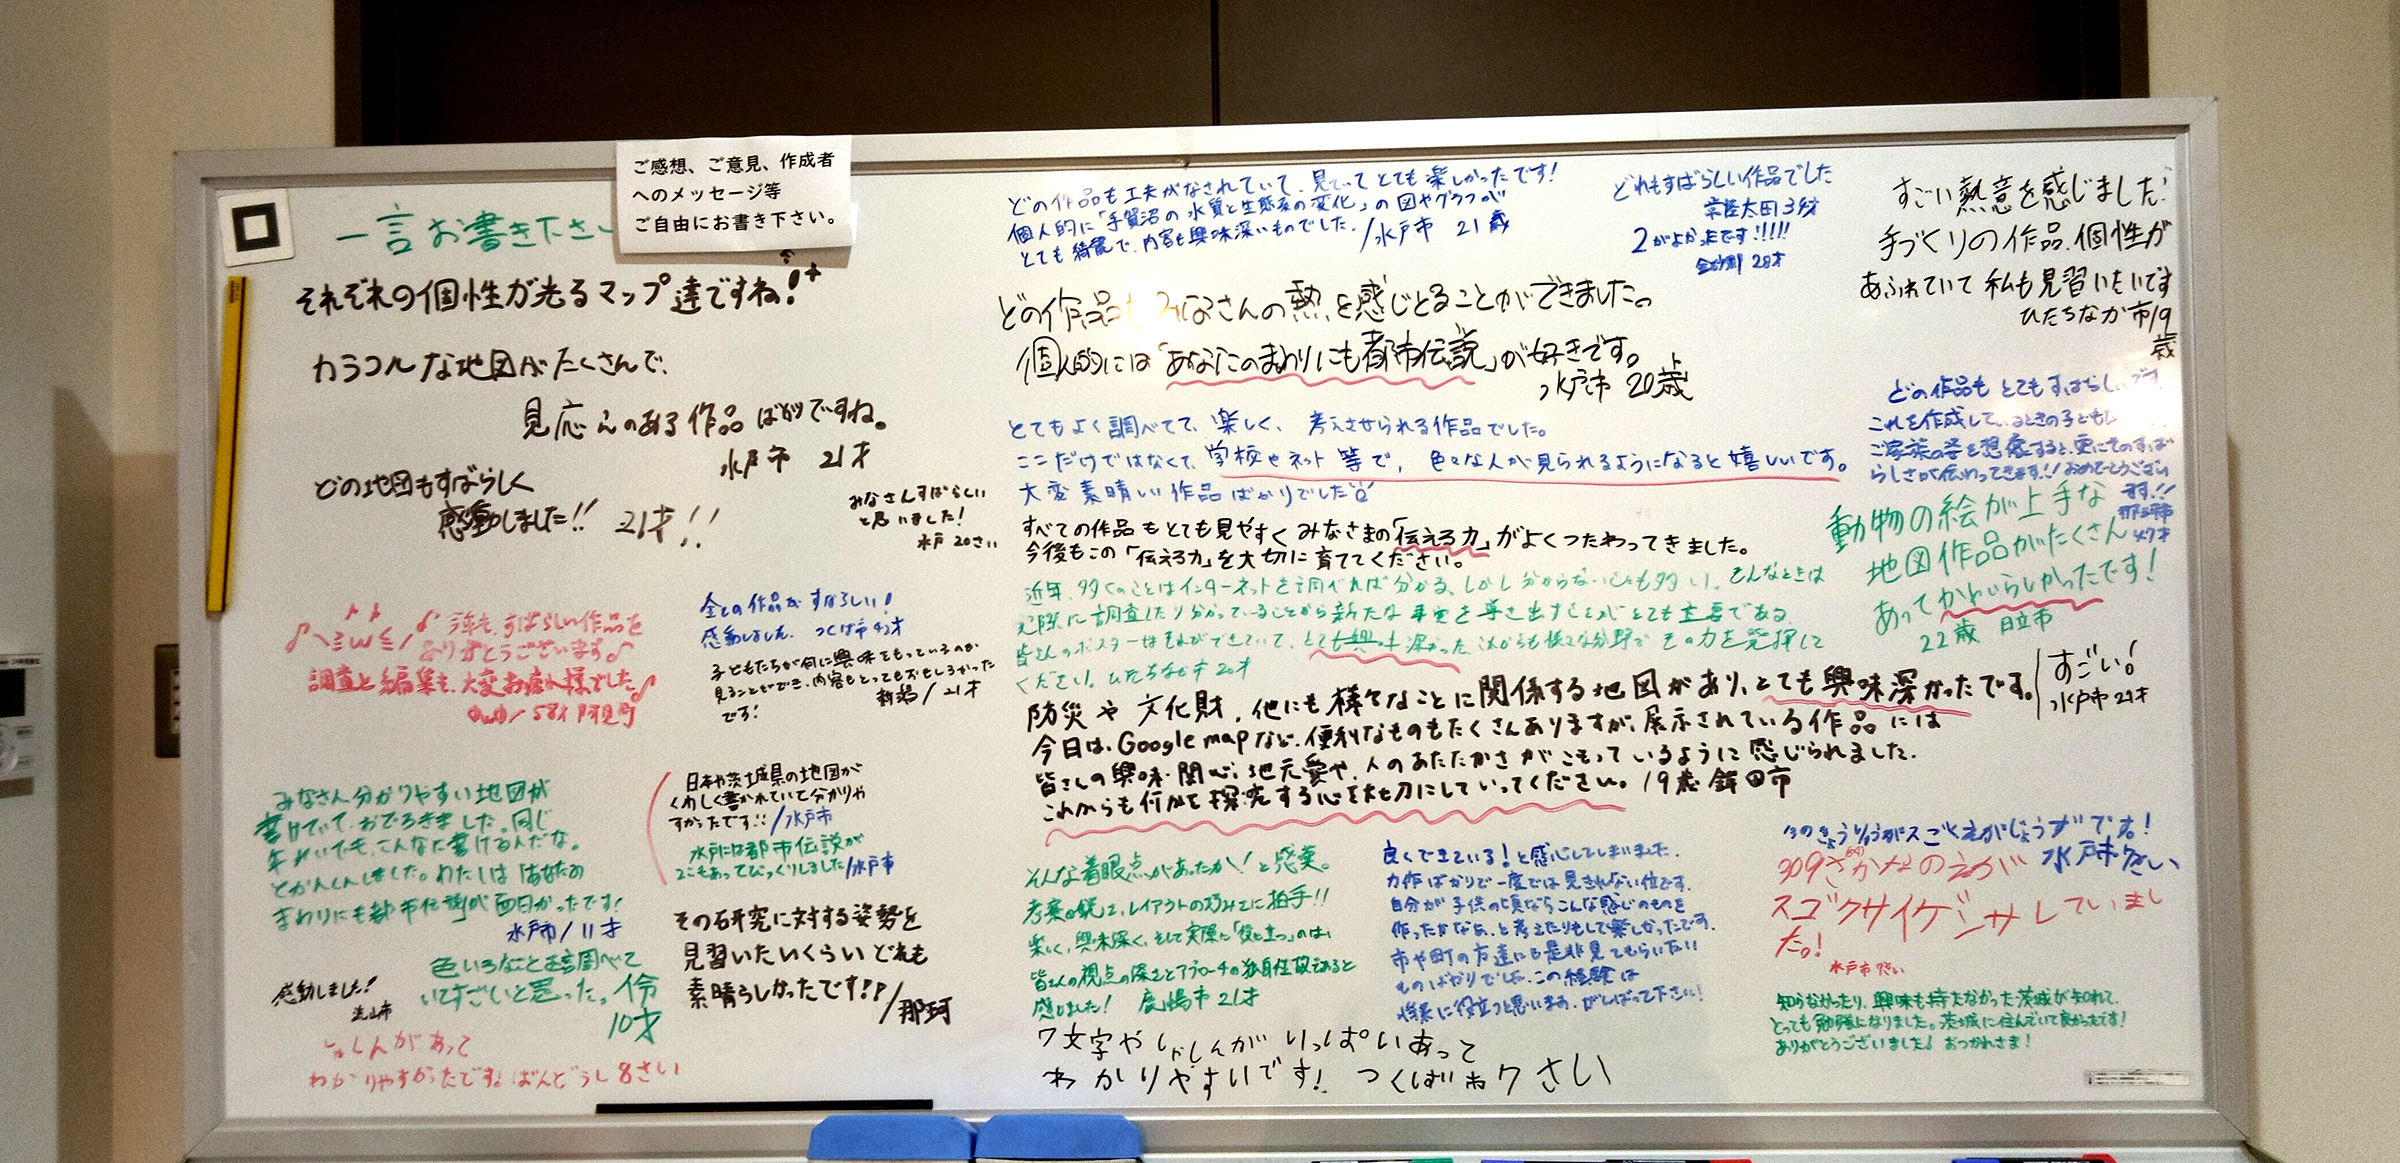 ご感想、ご意見、作成者
へのメッセージ等
ご自由にお書き下さい。
一言お書き下さい
それぞれの個性が光るマップ達ですね!
カラフルな地図がたくさんで、
見応えのある作品ばかりですね。
水戸市 21才
どの地図もすばらしく
感動しました!! 21才!!
みなさんすばらしい
と思いました!
水戸 20さい
今年も、すばらしい作品を
ありがとうございます♪
調査と編集も、大変お疲れ様でした♪
58才 阿見町
全ての作品がすばらしい!
感動しました。 つくば市 43才
子どもたちが何に興味をもっているのか
見ることができ、内容もとってもおもしろかった
です! 新潟/21才
みなさん分かりやすい地図が
書けていて、おどろきました。同じ
年れいでも、こんなに書けるんだな。
とかんしんしました。わたしは「あなたの
まわりにも都市伝説」が面白かったです!
水戸市/11才
日本や茨城県の地図が
くわしく書かれていて分かりや
すかったです!!/水戸市
水戸には都市伝説が
2こもあってびっくりしました/水戸市
感動しました!
流山市
色いろなことを調べて
いてすごいと思った。 伶
10才
その研究に対する姿勢を
見習いたいくらい どれも
素晴らしかったです!!/那珂
しゃしんがあって
わかりやすかったです! ばんどうし 8さい
どの作品も工夫がなされていて、見ていてとても楽しかったです!
個人的に「手賀沼の水質と生態系の変化」の図やグラフが
とても綺麗で、内容も興味深いものでした。/水戸市 21歳
どの作品もみなさんの熱を感じとることができました。
個人的には「あなたのまわりにも都市伝説」が好きです。
水戸市 20歳
とてもよく調べてて、楽しく、考えさせられる作品でした。
ここだけではなくて、学校やネット等で、色々な人が見られるようになると嬉しいです。
大変素晴しい作品ばかりでした
すべての作品もとても見やすくみなさまの「伝える力」がよくつたわってきました。
今後もこの「伝える力」を大切に育ててください。
近年、多くのことはインターネットを調べれば分かる。しかし分からないことも多い。そんなときは
実際に調査したり分かっていることから新たな事実を導き出すことがとても重要である。
皆さんのポスターはそれができていて、とても興味深かった。これからも様々な分野でその力を発揮して
ください。ひたちなか市 20才
防災や文化財、他にも様々なことに関係する地図があり、とても興味深かったです。
今日は、Google mapなど、便利なものもたくさんありますが、展示されている作品には
皆さんの興味・関心、地元愛や、人のあたたかさがこもっているように感じられました。
これからも何かを探究する心を大切にしていってください。19歳 鉾田市
そんな着眼点があったか!と感薬。
考案の鋭さ、レイアウトの巧みさに拍手!!
楽しく、興味深く、そして実際に「役に立つ」のは、
皆さんの視点の深さとアプローチの独自性故であると
感じました! 鹿嶋市 21才
良くできている!と感心してしまいました。
力作ばかりで一度では見きれない位です。
自分が子供の頃ならこんな感じのものを
作ったかなぁ、と考えたりもして楽しかったです。
市や町の方達にも是非見てもらいたい
ものばかりでした。この経験は
将来に役立つと思います。がんばって下さい!
7文字やしゃしんがいっぱいあって
わかりやすいです! つくば市7さい
どれもすばらしい作品でした
常陸太田 3才
2がよかったです!!!!!
28才
すごい熱意を感じました!
手づくりの作品、個性が
あふれていて私も見習いたいです
ひたちなか市/19
歳
どの作品もとてもすばらしいです
これを作成しているときの子ども
ご家族の姿を想像すると、更にそのすば
らしさが伝わってきます!!おめでとうござい
ます!!
那珂市
47才
動物の絵が上手な
地図作品がたくさん
あってかわいらしかったです!
22歳 日立市
すごい!
水戸市 21才
13のきょうりゅうがスごくえがじょうずです。!
水戸市7さい
309さかなのえが
スゴクサイゲンサしていまし
た。!
水戸市 7さい
知らなかったり、興味も持たなかった茨城が知れて、
とっても勉強になりました。茨城に住んでいて良かったです!
ありがとうございました! おつかれさま!